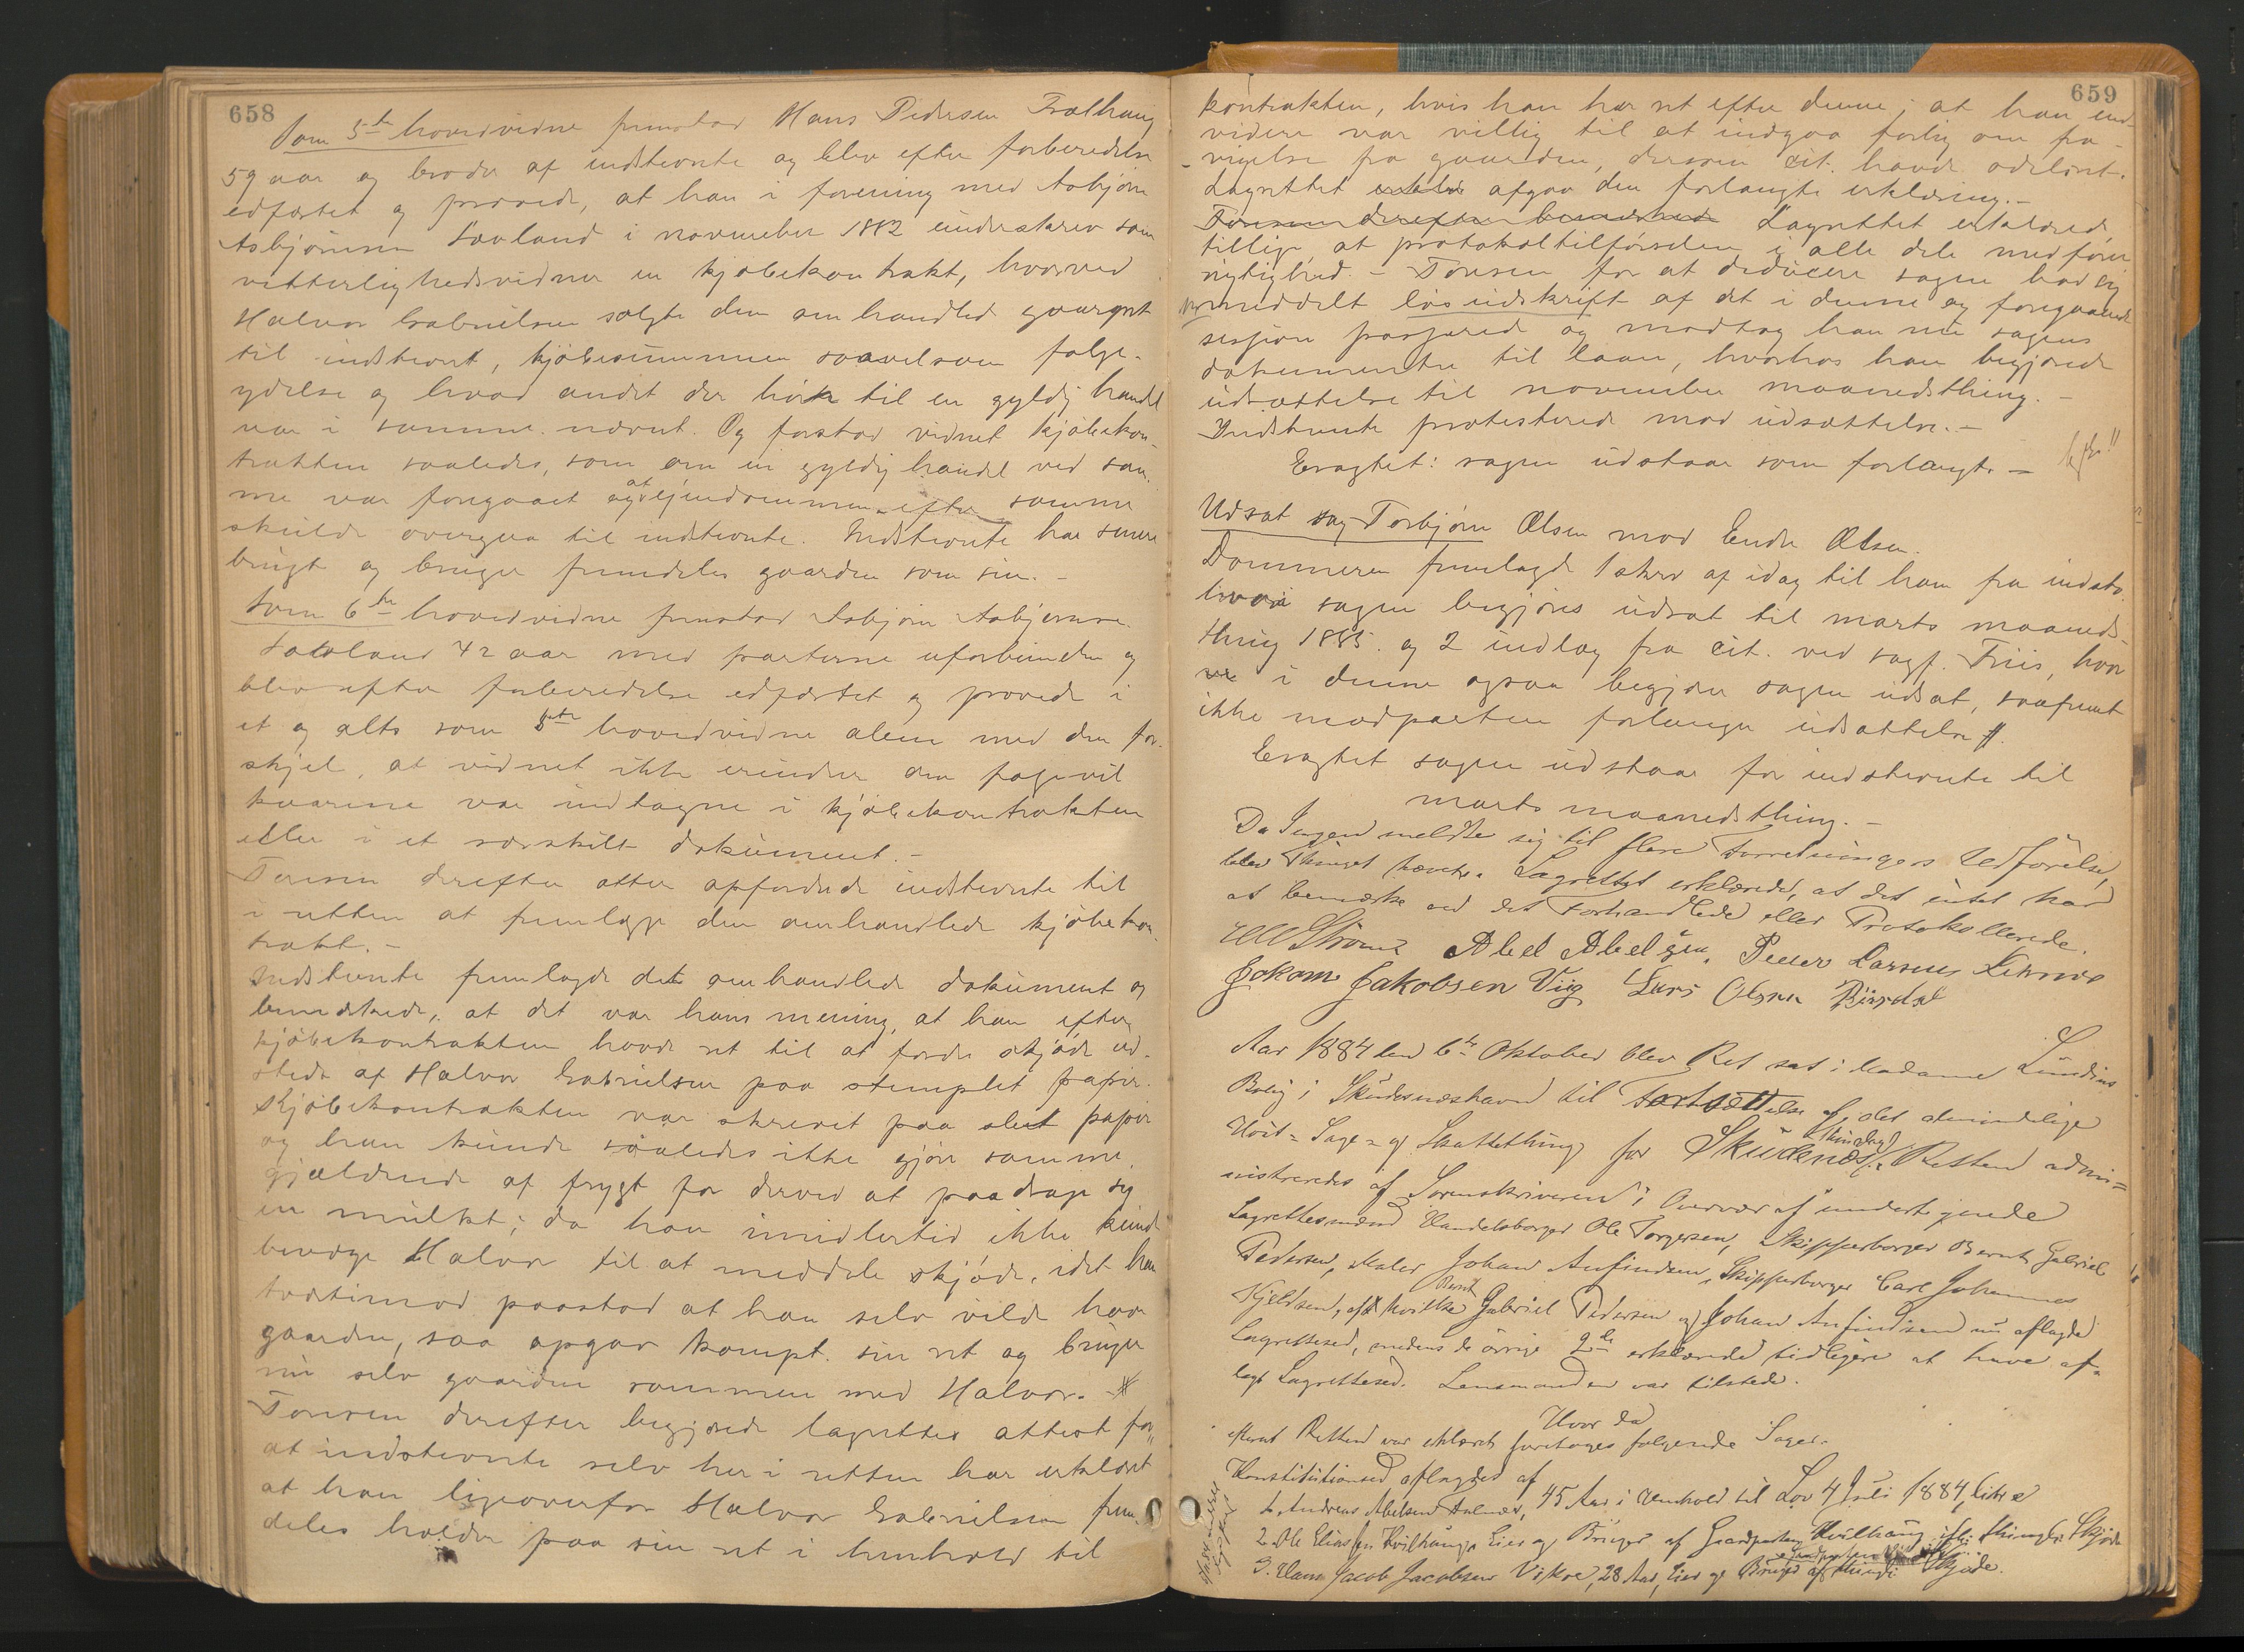 658
Som 5te hovedvidne fremstod Hans Pedersen Frælhaug
59 aar og broder af indstevnte og blev efter forberedelse
edfæstet og provede, at han i forening med Asbjørn
Asbjørnsen Sovland i november 1882 underskrev som
vitterlighedsvidner en kjøbekontrakt, hvorved
Halvor Gabrielsen solgte den omhandled gaarpart
til indstevnt, kjøbesummen saavelsom følge-
ydelse og hvad andet der hører til en gyldig handel
var i samme nævnt. Og forstod vidnet kjøbekon-
trakten saaledes, som om en gyldig handel ved sam-
me var foregaaet og at ejendommen efter samme
skulde overgaa til indstevnte. Indstevnte har senere
brugt og bruger fremdeles gaarden som sin. -
Som 6te hovedvidne fremstod Asbjørn Asbjørnsen
Sovland 42 aar med parterne uforbunden og
blev efter forberedelse edfæstet og provede i
et og alt som 5te hovedvidne alene med den for-
skjel, at vidnet ikke erindrer om føgevil
kaarene var indtagne i kjøbekontrakten
eller i et særskilt dokument. -
Tonsen derefter atter opfordrede indstevnte til
i retten at fremlægge den omhandlede kjøbekon-
trakt. -
Indstevnte fremlagde det omhandlede dokument og
bemærkede, at det var hans mening, at han efter
kjøbekontrakten havde ret til at fordre skjøde ud-
stedt af Halvor Gabrielsen paa stemplet papir.
Kjøbekontrakten var skrevet paa slet papir
og han kunde saaledes ikke gjøre samme
gjældende af frygt for derved at paadrage sig
en mulkt; da han imidlertid ikke kunde
bevæge Halvor til at meddele skjøde, idet han
tvertimod paastod at han selv vilde have
gaarden, saa opgav kompt. sin ret og bruger
nu selv gaarden sammen med Halvor. -
Tonsen derefter begjærede lagrettes attest for,
at indstevnte selv her i retten har erklæret
at han ligeoverfor Halvor Gabrielsen frem-
deles holder paa sin ret i henhold til
659
kontrakten, hvis han har ret efter denne; at han end-
videre var villig til at indgaa forlig om fra-
vigelse fra gaarden, dersom cit. havde odelsret.
Lagrettet afgav den forlangte erklæring. -
Tonsen derefter bemærkede Lagrettet erklærede
tillige at protokoltilførselen i alle dele medfører
rigtighed. - Tonsen for at deducere sagen bad sig
meddelt løs udskrift af det i denne og foregaaende
session passerede og modtog han nu sagens
dokumenter til laan, hvorhos han begjærede
udsættelse til november maanedsthing. -
Indstevnte protesterede mod udsættelse. -
Eragtet: sagen udstaar som forlangt. -
Udsat sag Torbjørn Olsen mod Endre Olsen.
Dommeren fremlagde 1 skrv af idag til ham fra indstv.
hvori sagen begjæres udsat til marts maaneds-
thing 1885 og 2 indlæg fra cit. ved sagf. Friis, hvor
i denne ogsaa begjærer sagen udsat, saafremt
ikke modparten forlanger udsættelse.
Eragtet sagen udstaar for indstevnte til
marts maanedsthing. -
Da Ingen meldte sig til flere Forretningers Udførelse,
blev Thinget hævet. Lagrettet erklærede, at det intet har
at bemærke ved det Forhandlede eller Protokollerede.
Strøm Abel Abelsen, Peder Larsen
Jakom Jakobsen Vig Lars Olsen
Aar 1884 den 6te Oktober blev Ret sat i Madame Lundins
Bolig i Skudesnæshavn til Fortsættelse af det almindelige
Høst= Sage= og Skattething for Skudenæs skinlag. Retten admi=
nistreredes af Sorenskriveren i Overvær af undertegnede
Lagrettesmænd Handelsborger Ole Torgersen, Skipperborger Bernt Gabriel
Pedersen, Maler Johan Anfindsen, Skipperborger Carl Johannes
Kjeldsen, af hvilke Bernt Gabriel Pedersen og Johan Anfindsen nu aflagde
Lagretteseed, medens de øvrige 2de erklærede tidligere at have af-
lagt Lagretteseed. Lensmanden var tilstede.
Hvor da
efterat Retten var erklæret foretoges følgende Sager.
Konstitutionsed aflagdes af
1. Andreas Abelsen 45 Aar i Henhold til Lov 4 Juli 1884,
2. Ole Eliassen Hvilhaug, Eier og Bruger af Gaardparten Hvilhaug ifl. thingl. Skjøde
3. Hans Jacob Jacobsen Vikre, 28 Aar, Eier og Bruger af Skjøde.